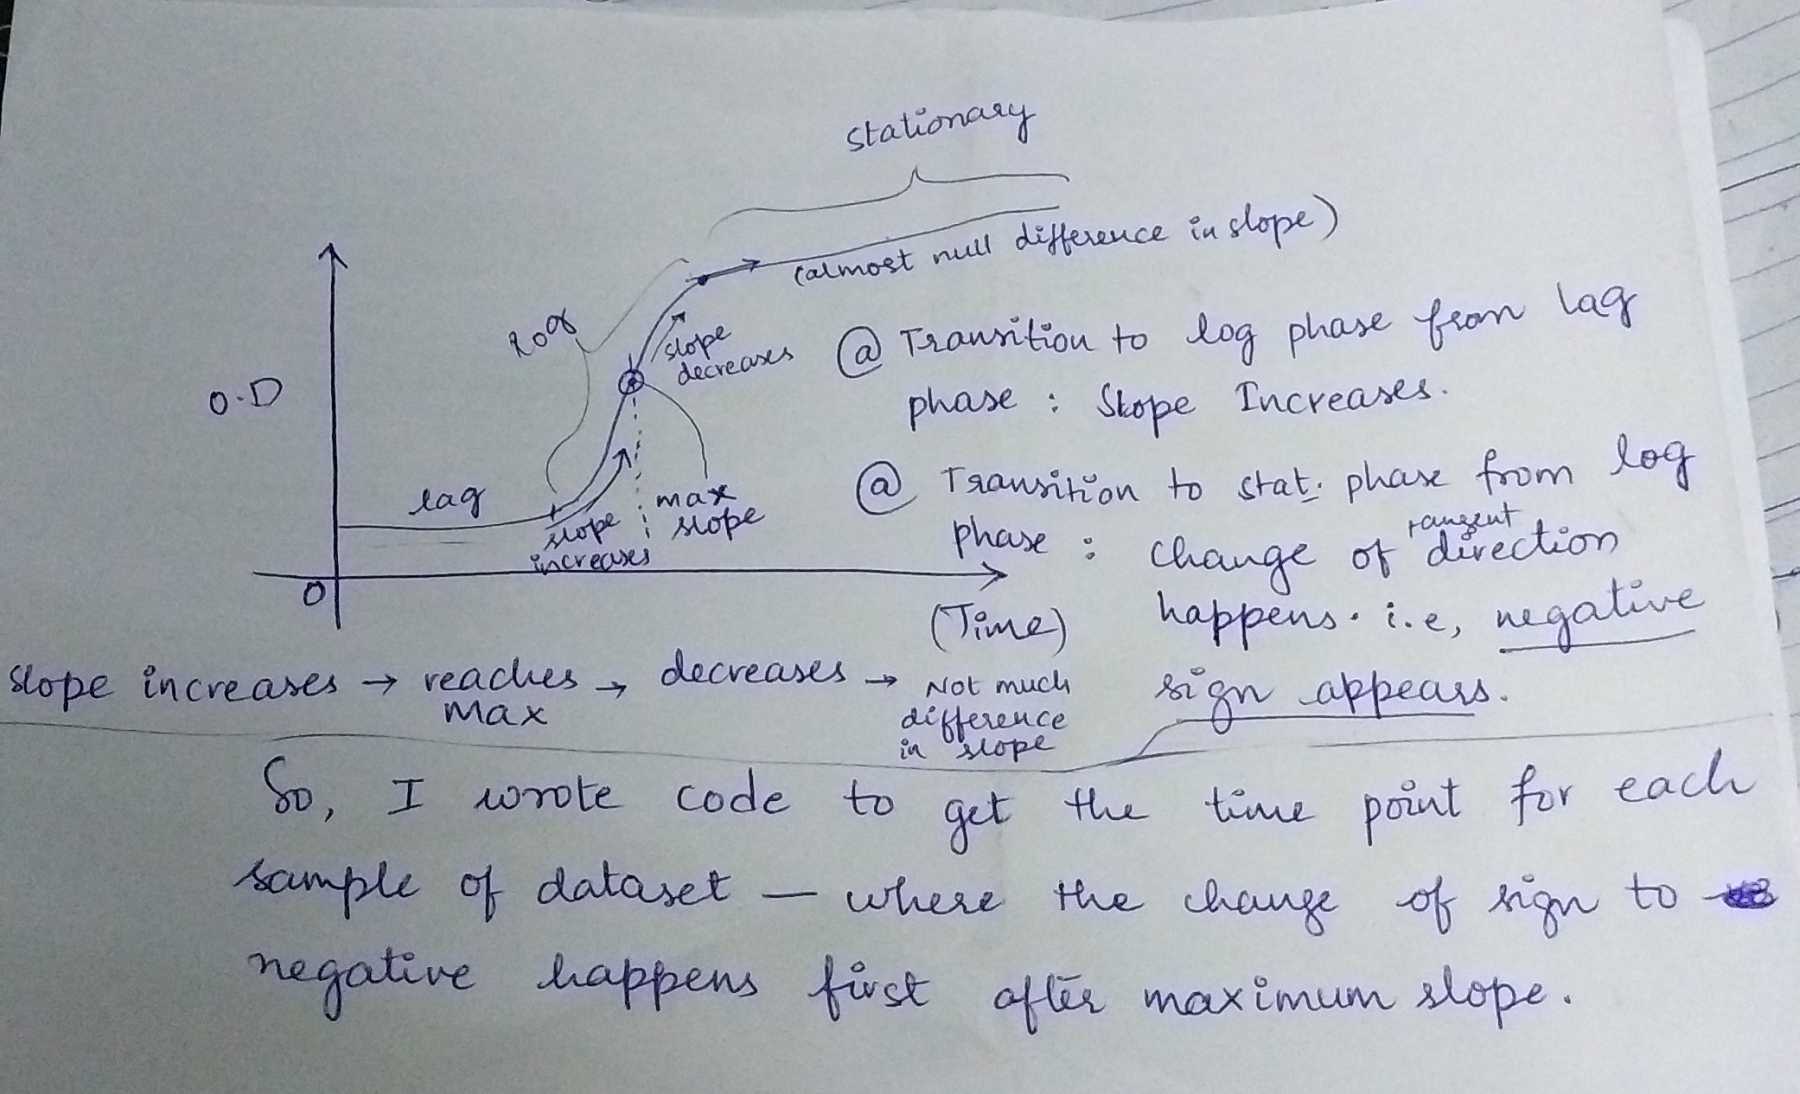 stationary
(almost null difference in slope)
log
slope
decreases
O.D
lag
slope
increases
max
slope
O
(Time)
@ Transition to log phase from lag
phase : Slope Increases.
@ Transition to stat. phase from log
phase : change of tangent direction
happens. i.e, negative
sign appears.
slope increases → reaches → decreases → Not much
max
difference
in slope
So, I wrote code to get the time point for each
sample of dataset — where the change of sign to
negative happens first after maximum slope.